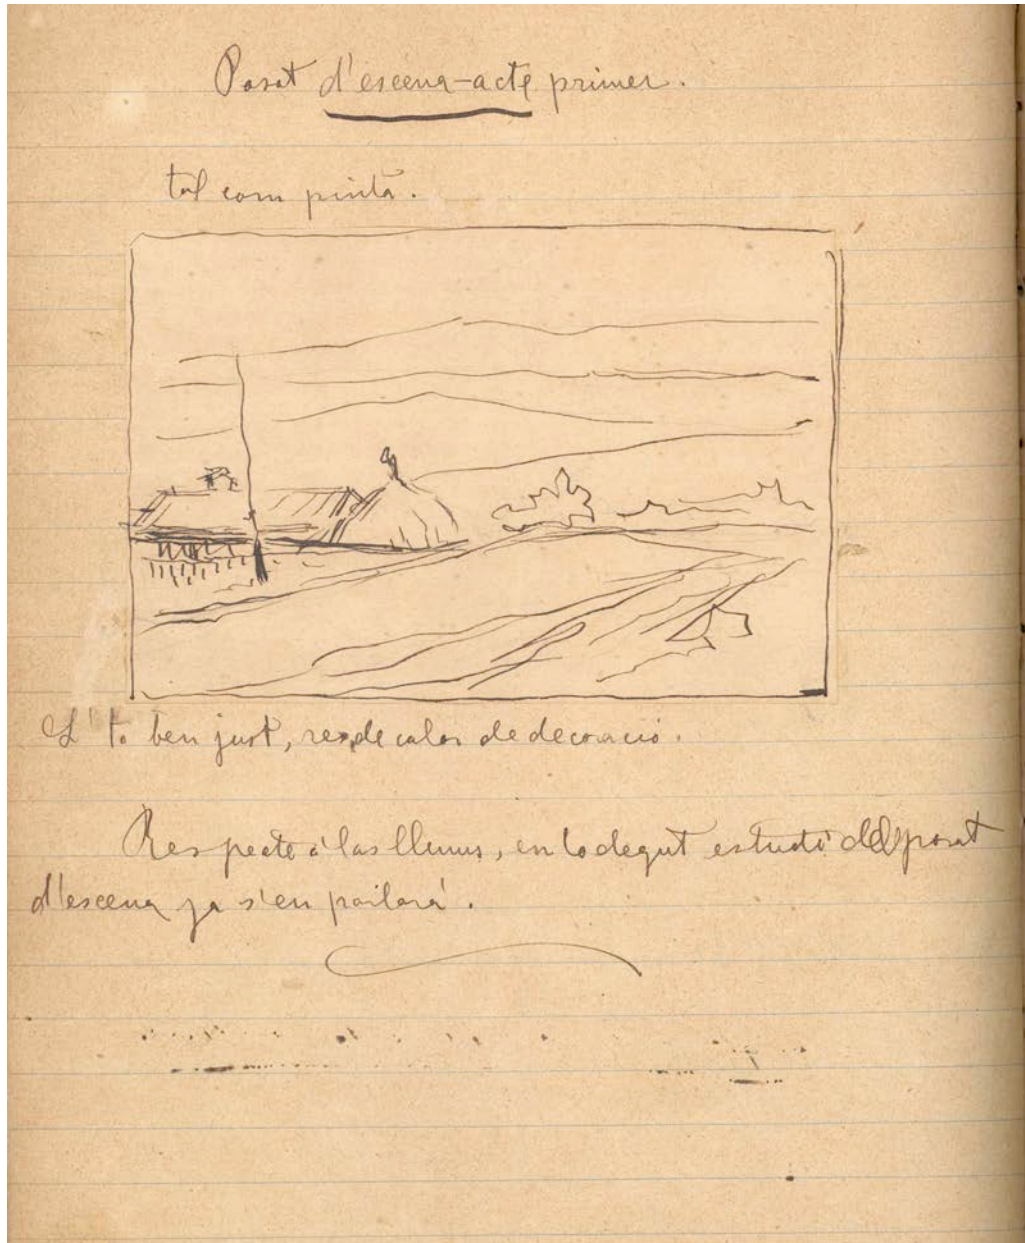 Posat d'escena-acte primer.
tal com pintá.
L' to ben just, res de calor de decoració.
Respecte á las llums, en lo degut estudi del posat
d'escena ja s'en parlará.